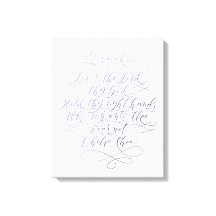 For I the Lord
thy God
Hold thy right hand,
thee
fear not
I help thee